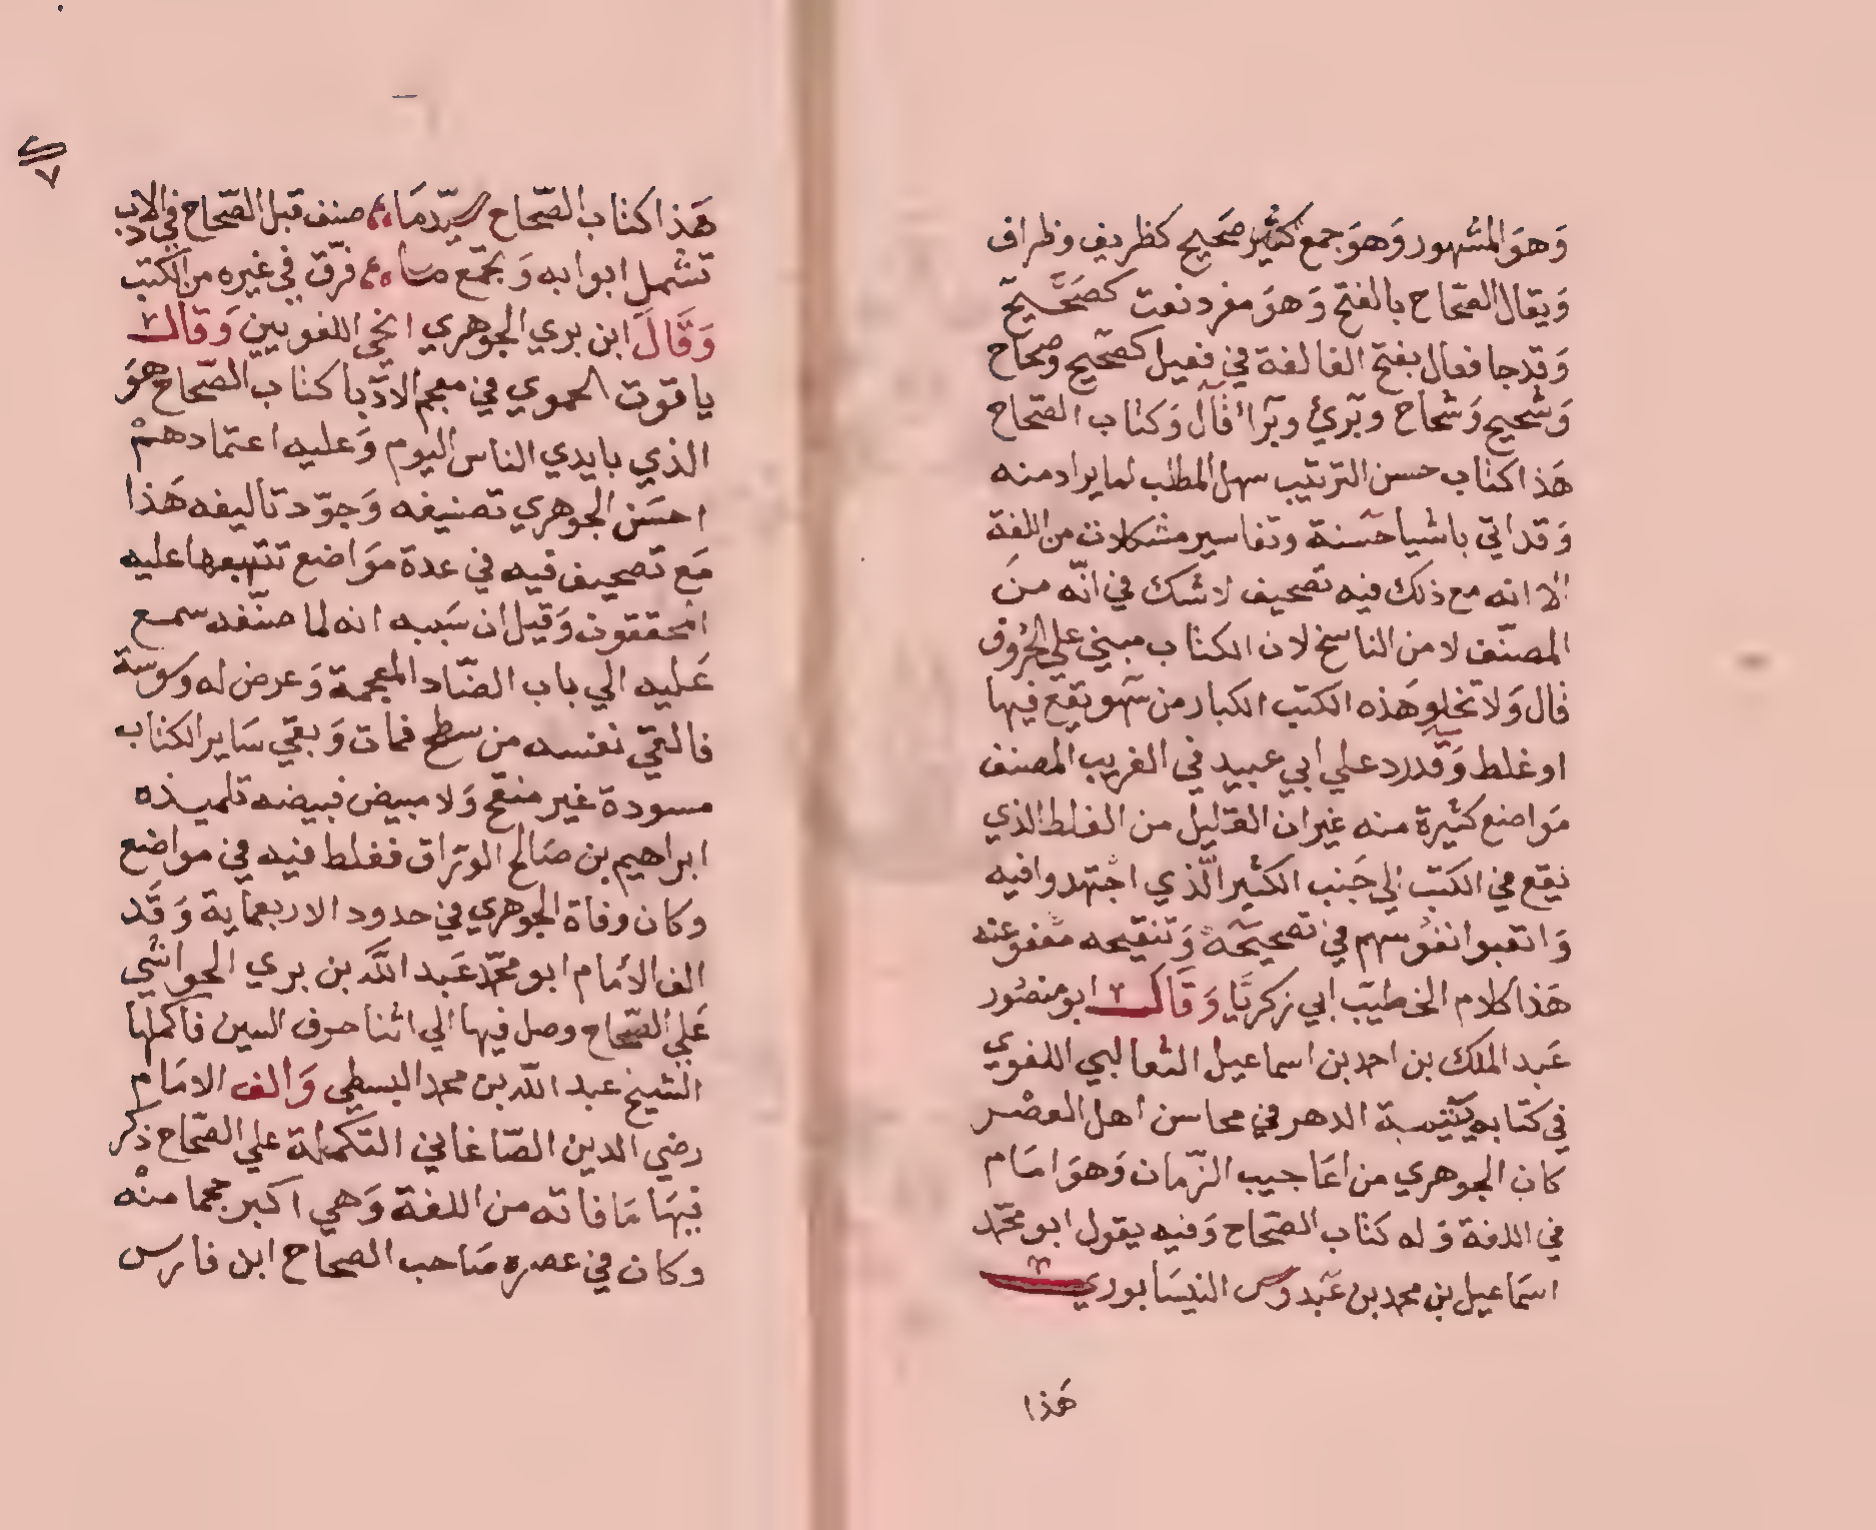 وَهوَ المشهور وَهوَ جمع كثير صَحيح كظريف وظراف
وَيقال الصّحاح بالفتح وَهوَ مفرد نعت كصَحيح
وَقد جا فعال بفتح الفا لغة في فعيل كصحيح وصحاح
وَشحيح وَشحاح وبَرئ وبَرأ قال وَكتاب الصّحاح
هَذا كتاب حسن الترتيب سهل المطلب لما يراد منه
وَقد اتي باشيا حسَنة وتفاسير مشكلات من اللغة
الا انه مع ذلك فيه تصحيف لا شك في انّه منَ
المصنّف لا من الناسخ لان الكتاب مبني علي الحروف
قال وَلا تخلو هَذه الكتب الكبار من سَهو يقع فيها
او غلط وَقد رد علي ابي عبيد في الغريب المصنف
مَواضع كثيرة منه غير ان القليل من الغلط الذي
يقع في الكتب الي جَنب الكثير الّذي اجتهدوا فيه
وَاتعبوا نفوسهم في تصحيحَه وَتنقيحه معفو عنه
هَذا كلام الخطيب ابي زكريَّا وَقَالَ ابو منصُور
عَبد الملك بن احمد بن اسماعيل الثعالبي اللغوي
في كتابه يتيمة الدهر في محاسن اهل العصْر
كان الجوهري من اعَاجيب الزّمان وَهوَ امَام
في اللغة وَله كتاب الصّحاح وَفيه يقول ابو محمّد
اسمَاعيل بن محمد بن عَبدوس النيسَابوري
هَذا
٧
هَذا كتاب الصّحاح سيّد مَا صنف قبل الصّحاح في الادب
تشمل ابوابه وَتجمّع ما فرّق في غيره من الكتب
وَقَالَ ابن بري الجوهري انحي اللغويين وَقال
ياقوت الحموي في معجم الادَبا كتاب الصّحاح هوَ
الذي بايدي الناس اليوم وَعليه اعتمادهمْ
احسَن الجوهري تصنيفه وَجوّد تاليفه هَذا
مَع تصحيف فيه في عدة موَاضع تتبعها عليه
المحققون وَقيل ان سَببه انه لما صنّفه سمع
عَليه الي باب الضّاد المعجمة وَعرض له وسوسة
فالقي نفسه من سطح فمات وَبقي سَاير الكتاب
مسودة غير منقح وَلا مبيض فبيضه تلميذه
ابراهيم بن صَالح الورّاق فغلط فيه في مواضع
وكان وفاة الجوهري في حدود الاربعماية وَقَد
الف الأمام ابو محمّد عَبد اللَّه بن بري الحواشي
عَلي الصّحاح وصل فيها الي اثنا حرف السين فاكملها
الشيخ عبد اللّه بن محمد البسطي وَالف الامَام
رضي الدين الصّاغاني التكملة علي الصّحاح ذكر
فيهَا مَا فاته من اللغة وَهي اكبر حجما منْه
وكان في عصره صَاحب الصحاح ابن فارس